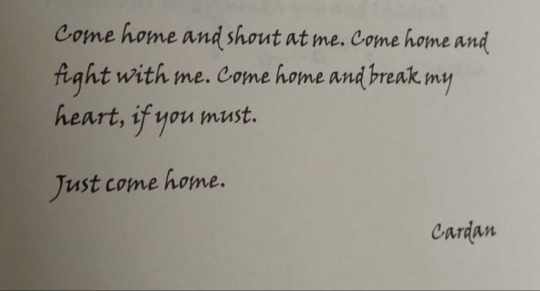 Come home and shout at me. Come home and
fight with me. Come home and break my
heart, if you must.
Just come home.
Cardan